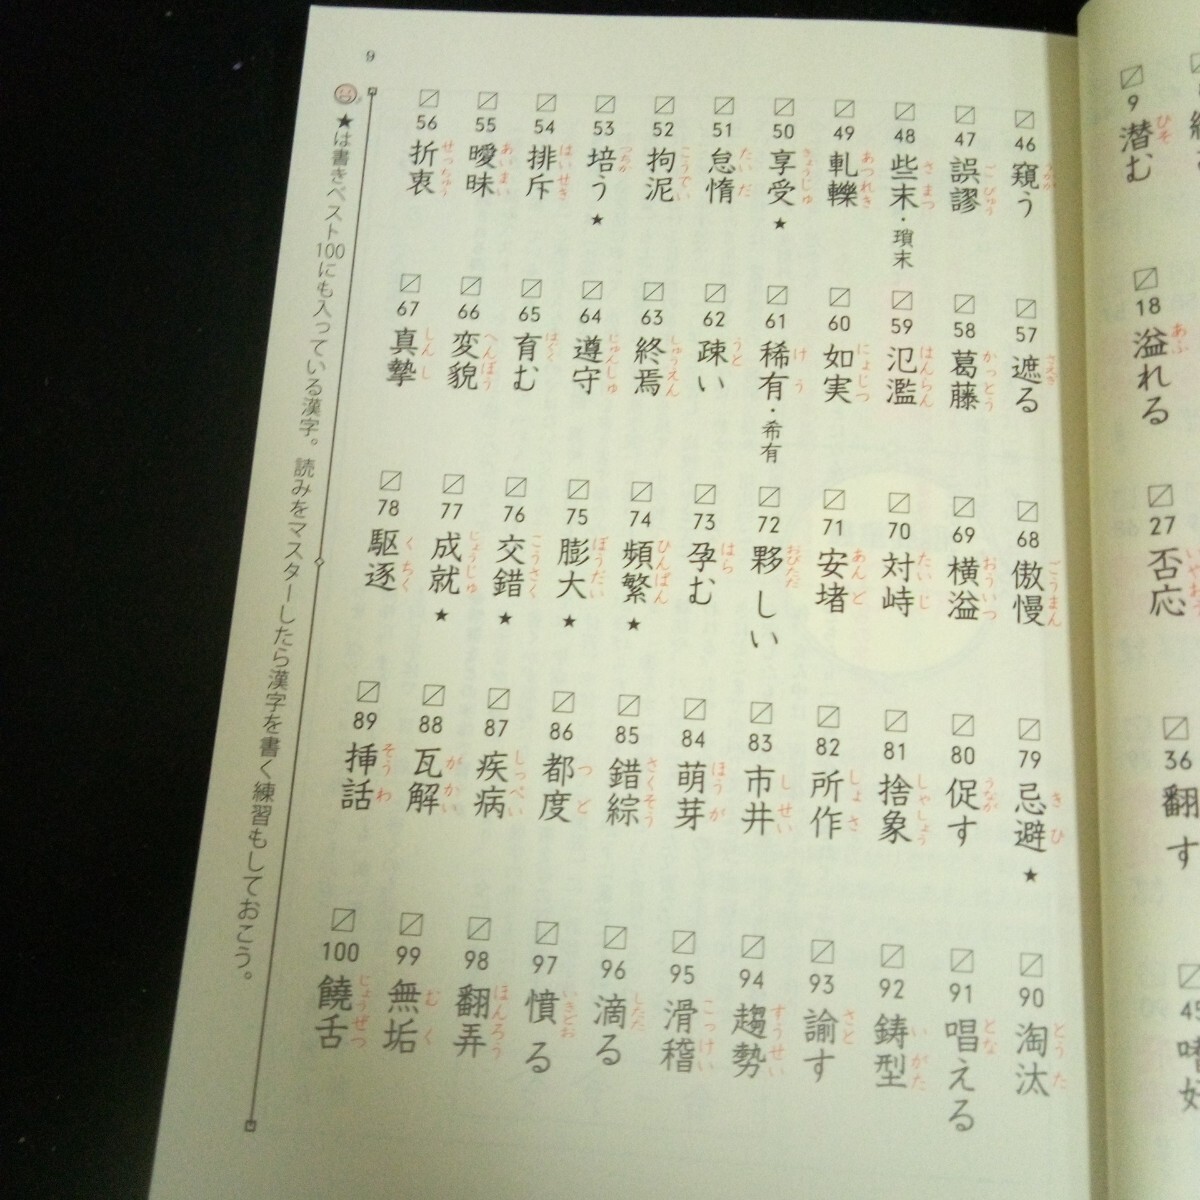 9
潜む
ひそ
18
溢れる
あふ
27
否応
いやおう
36
翻す
45
嗜好
46
窺う
うかが
47
誤謬
ごびゅう
48
些末・瑣末
さまつ
49
軋轢
あつれき
50
享受★
きょうじゅ
51
怠惰
たいだ
52
拘泥
こうでい
53
培う★
つちか
54
排斥
はいせき
55
曖昧
あいまい
56
折衷
せっちゅう
57
遮る
さえぎ
58
葛藤
かっとう
59
氾濫
はんらん
60
如実
にょじつ
61
稀有・希有
けう
62
疎い
うと
63
終焉
しゅうえん
64
遵守
じゅんしゅ
65
育む
はぐく
66
変貌
へんぼう
67
真摯
しんし
68
傲慢
ごうまん
69
横溢
おういつ
70
対峙
たいじ
71
安堵
あんど
72
夥しい
おびただ
73
孕む
はら
74
頻繁★
ひんぱん
75
膨大★
ぼうだい
76
交錯★
こうさく
77
成就★
じょうじゅ
78
駆逐
くちく
79
忌避★
きひ
80
促す
うなが
81
捨象
しゃしょう
82
所作
しょさ
83
市井
しせい
84
萌芽
ほうが
85
錯綜
さくそう
86
都度
つど
87
疾病
しっぺい
88
瓦解
がかい
89
挿話
そうわ
90
淘汰
とうた
91
唱える
とな
92
鋳型
いがた
93
諭す
さと
94
趨勢
すうせい
95
滑稽
こっけい
96
滴る
したた
97
憤る
いきどお
98
翻弄
ほんろう
99
無垢
むく
100
饒舌
じょうぜつ
★は書きベスト100にも入っている漢字。読みをマスターしたら漢字を書く練習もしておこう。
9